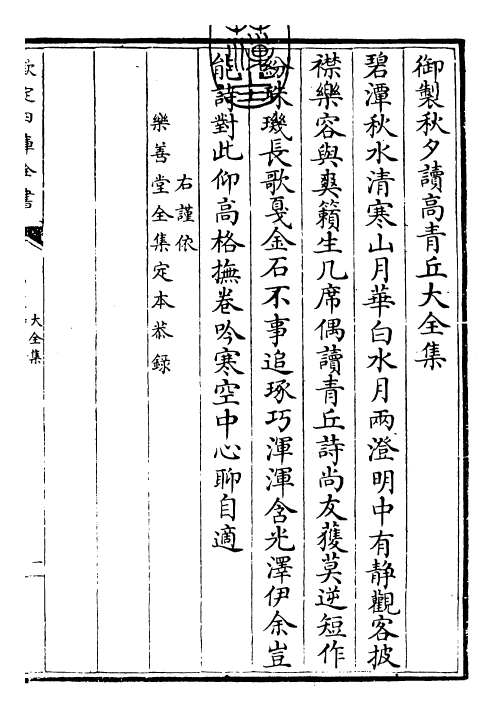 御製秋夕讀高青丘大全集
碧潭秋水清寒山月華白水月兩澄明中有静觀客披
襟樂容與爽籟生几席偶讀青丘詩尚友獲莫逆短作
紛珠璣長歌戛金石不事追琢巧渾渾含光澤伊余豈
能詩對此仰高格撫卷吟寒空中心聊自適
右謹依
樂善堂全集定本恭録
欽定四庫全書
大全集